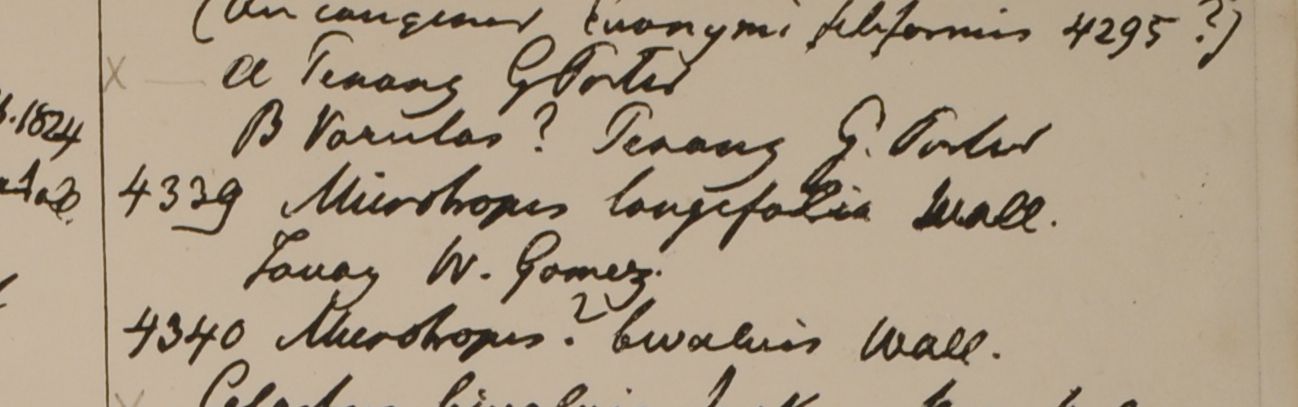 (An congener Euonymi filiformis 4295?)
X — a Penang G Porter
B Varietas? Penang G. Porter
4339 Microtropis longifolia Wall.
Tavoy W. Gomez.
4340 Microtropis? bivalvis Wall.
.1824